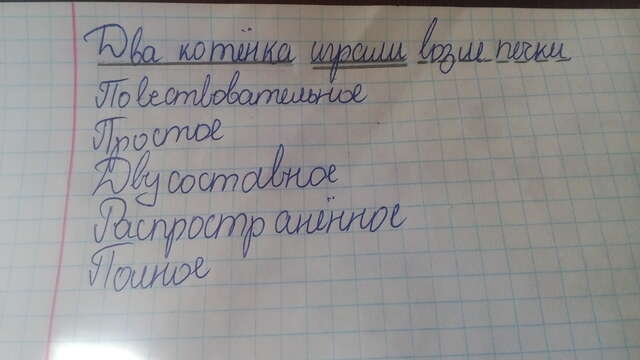 Два котёнка играли возле печки
Повествовательное
Простое
Двусоставное
Распространённое
Полное